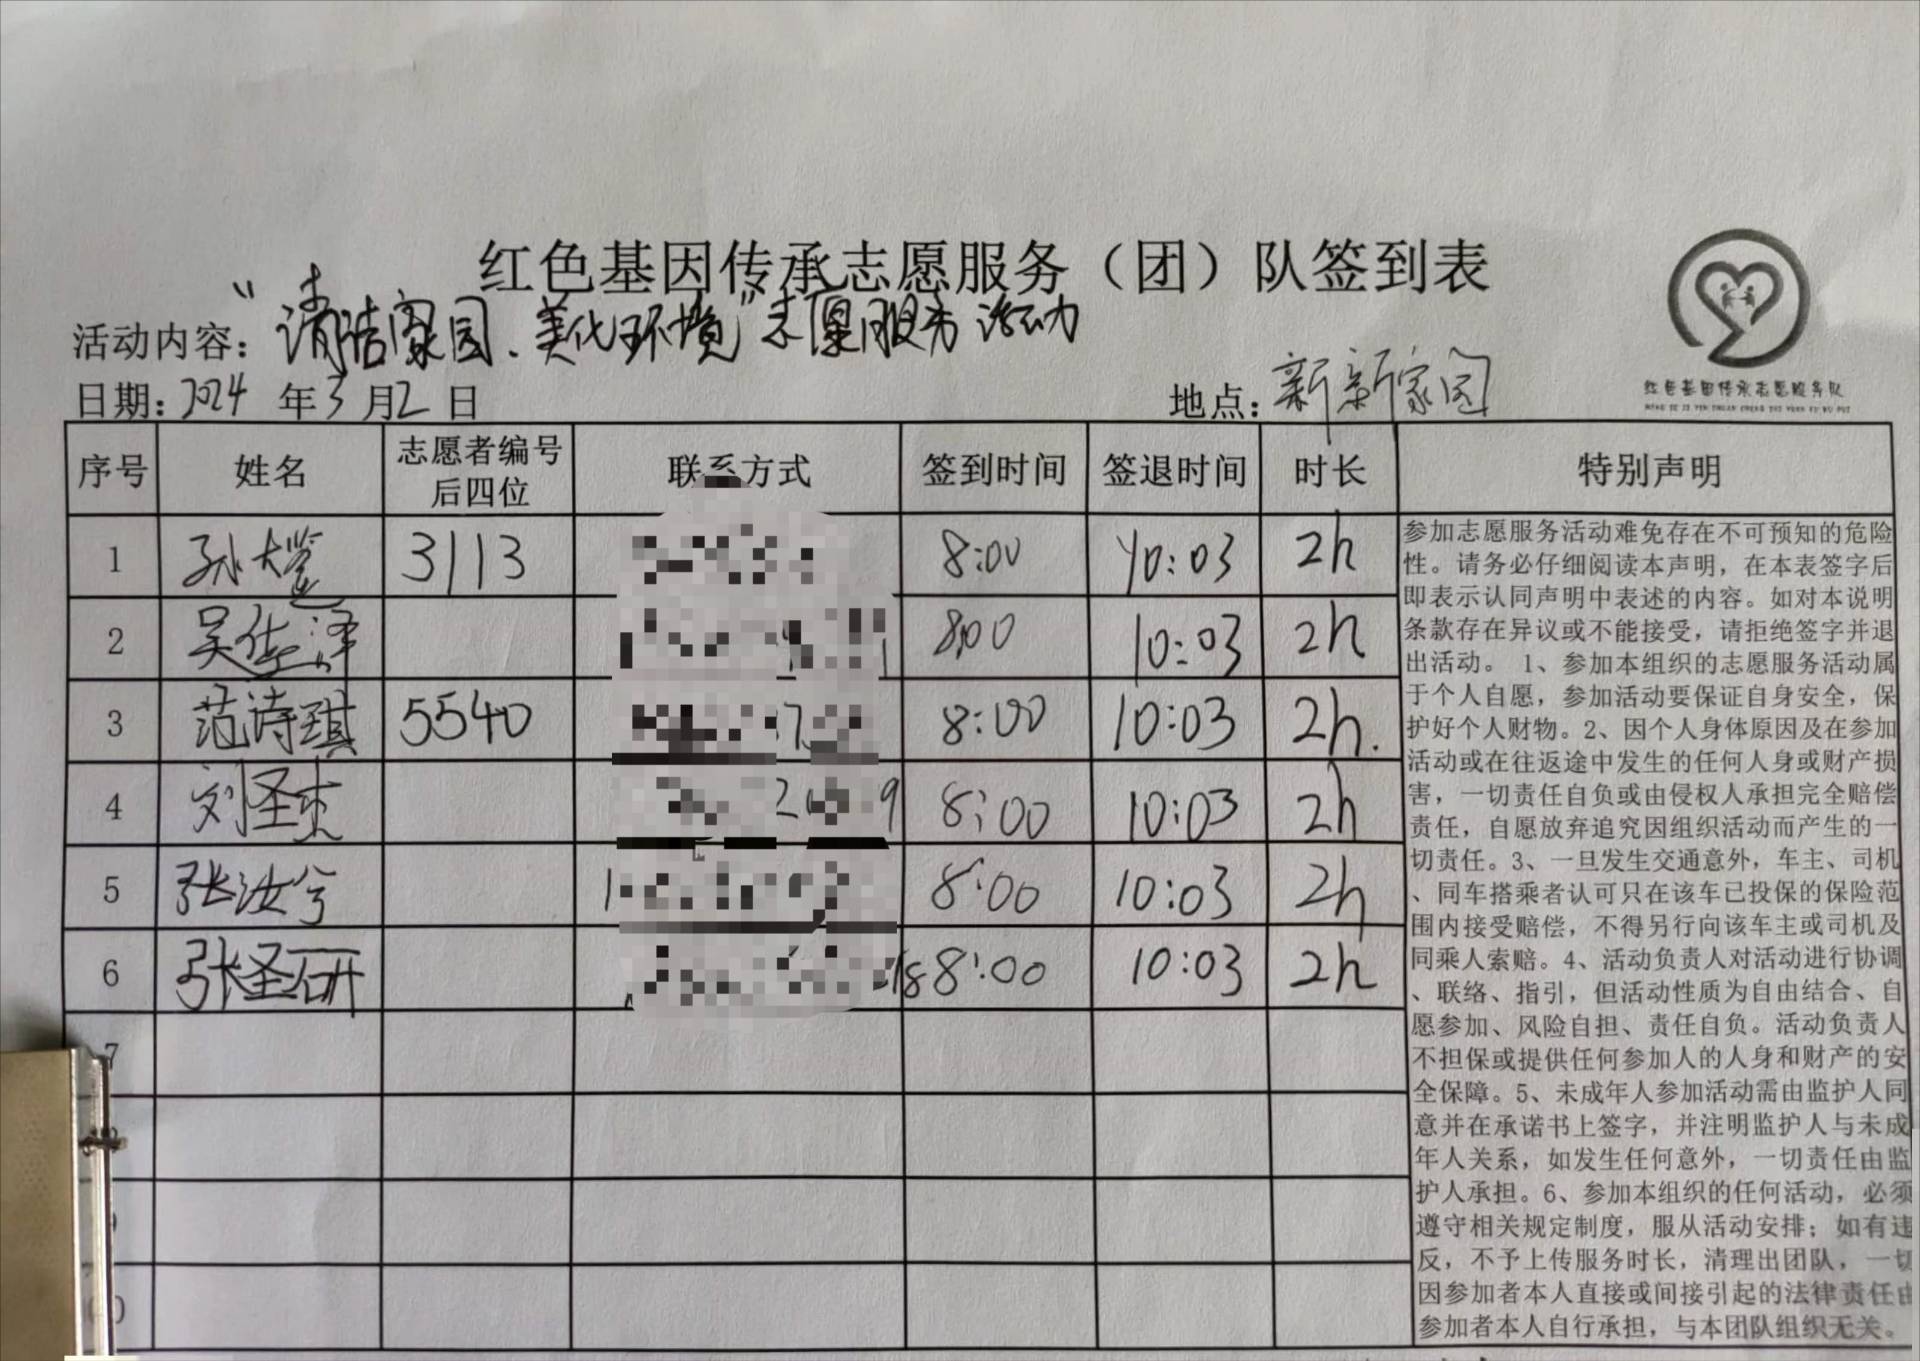 红色基因传承志愿服务（团）队签到表
活动内容："清洁家园、美化环境"志愿服务活动
日期：2024年3月2日 地点：新新家园
红色基因传承志愿服务队
序号 姓名 志愿者编号后四位 联系方式 签到时间 签退时间 时长 特别声明
1 孙大鉴 3113 8:00 10:03 2h
2 吴佳泽 8:00 10:03 2h
3 范诗琪 5540 8:00 10:03 2h.
4 刘圣杰 8:00 10:03 2h
5 张汝兮 8:00 10:03 2h
6 张圣研 8:00 10:03 2h
7
参加志愿服务活动难免存在不可预知的危险
性。请务必仔细阅读本声明，在本表签字后
即表示认同声明中表述的内容。如对本说明
条款存在异议或不能接受，请拒绝签字并退
出活动。 1、参加本组织的志愿服务活动属
于个人自愿，参加活动要保证自身安全，保
护好个人财物。2、因个人身体原因及在参加
活动或在往返途中发生的任何人身或财产损
害，一切责任自负或由侵权人承担完全赔偿
责任，自愿放弃追究因组织活动而产生的一
切责任。3、一旦发生交通意外，车主、司机
、同车搭乘者认可只在该车已投保的保险范
围内接受赔偿，不得另行向该车主或司机及
同乘人索赔。4、活动负责人对活动进行协调
、联络、指引，但活动性质为自由结合、自
愿参加、风险自担、责任自负。活动负责人
不担保或提供任何参加人的人身和财产的安
全保障。5、未成年人参加活动需由监护人同
意并在承诺书上签字，并注明监护人与未成
年人关系，如发生任何意外，一切责任由监
护人承担。6、参加本组织的任何活动，必须
遵守相关规定制度，服从活动安排；如有违
反，不予上传服务时长，清理出团队，一切
因参加者本人直接或间接引起的法律责任由
参加者本人自行承担，与本团队组织无关。